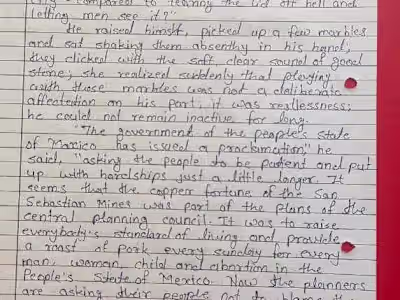 compared to tearing the lid off hell and
letting men see it?"
He raised himself, picked up a few marbles
and sat shaking them absently in his hand,
they clicked with the soft, clear sound of good
stone; she realized suddenly that playing
with those marbles was not a deliberate
affectation on his part, it was restlessness;
he could not remain inactive for long.
"The government of the people's state
of Mexico has issued a proclamation," he
said, "asking the people to be patient and put
up with hardships just a little longer. It
seems that the copper fortune of the San
Sebastian Mines was part of the plans of the
central planning council. It was to raise
everybody's standard of living and provide
a roast of pork every sunday for every
man, woman, child and abortion in the
People's State of Mexico. Now the planners
are asking their people not to blame the